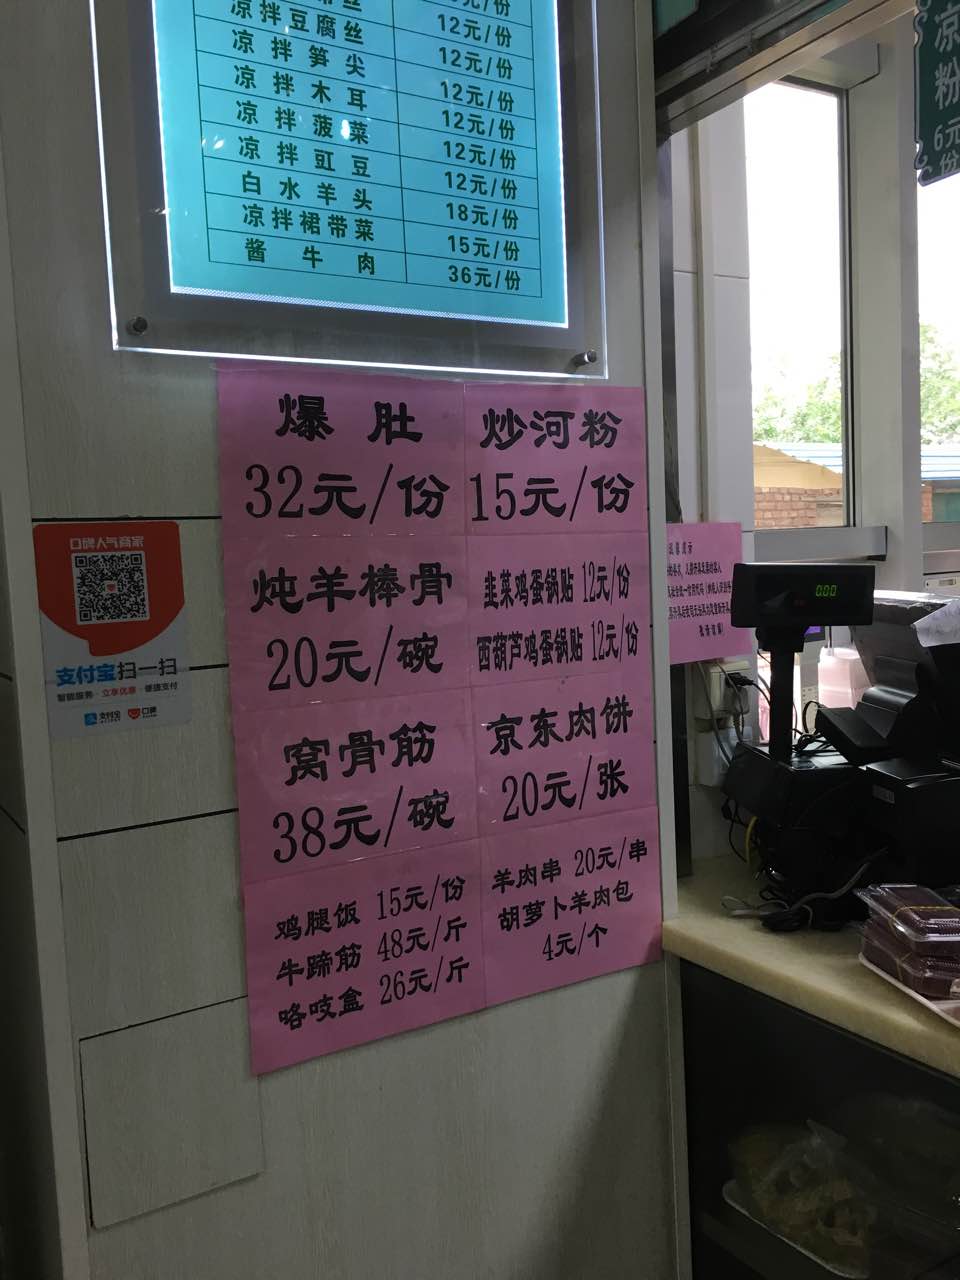 凉拌豆腐丝 12元/份
凉拌笋尖 12元/份
凉拌木耳 12元/份
凉拌菠菜 12元/份
凉拌豇豆 12元/份
白水羊头 18元/份
凉拌裙带菜 15元/份
酱牛肉 36元/份
爆肚
32元/份
炒河粉
15元/份
炖羊棒骨
20元/碗
韭菜鸡蛋锅贴 12元/份
西葫芦鸡蛋锅贴 12元/份
窝骨筋
38元/碗
京东肉饼
20元/张
鸡腿饭 15元/份
牛蹄筋 48元/斤
咯吱盒 26元/斤
羊肉串 20元/串
胡萝卜羊肉包
4元/个
口碑人气商家
支付宝扫一扫
智能服务·立享优惠·便捷支付
支付宝 口碑
凉粉
6元
份
000